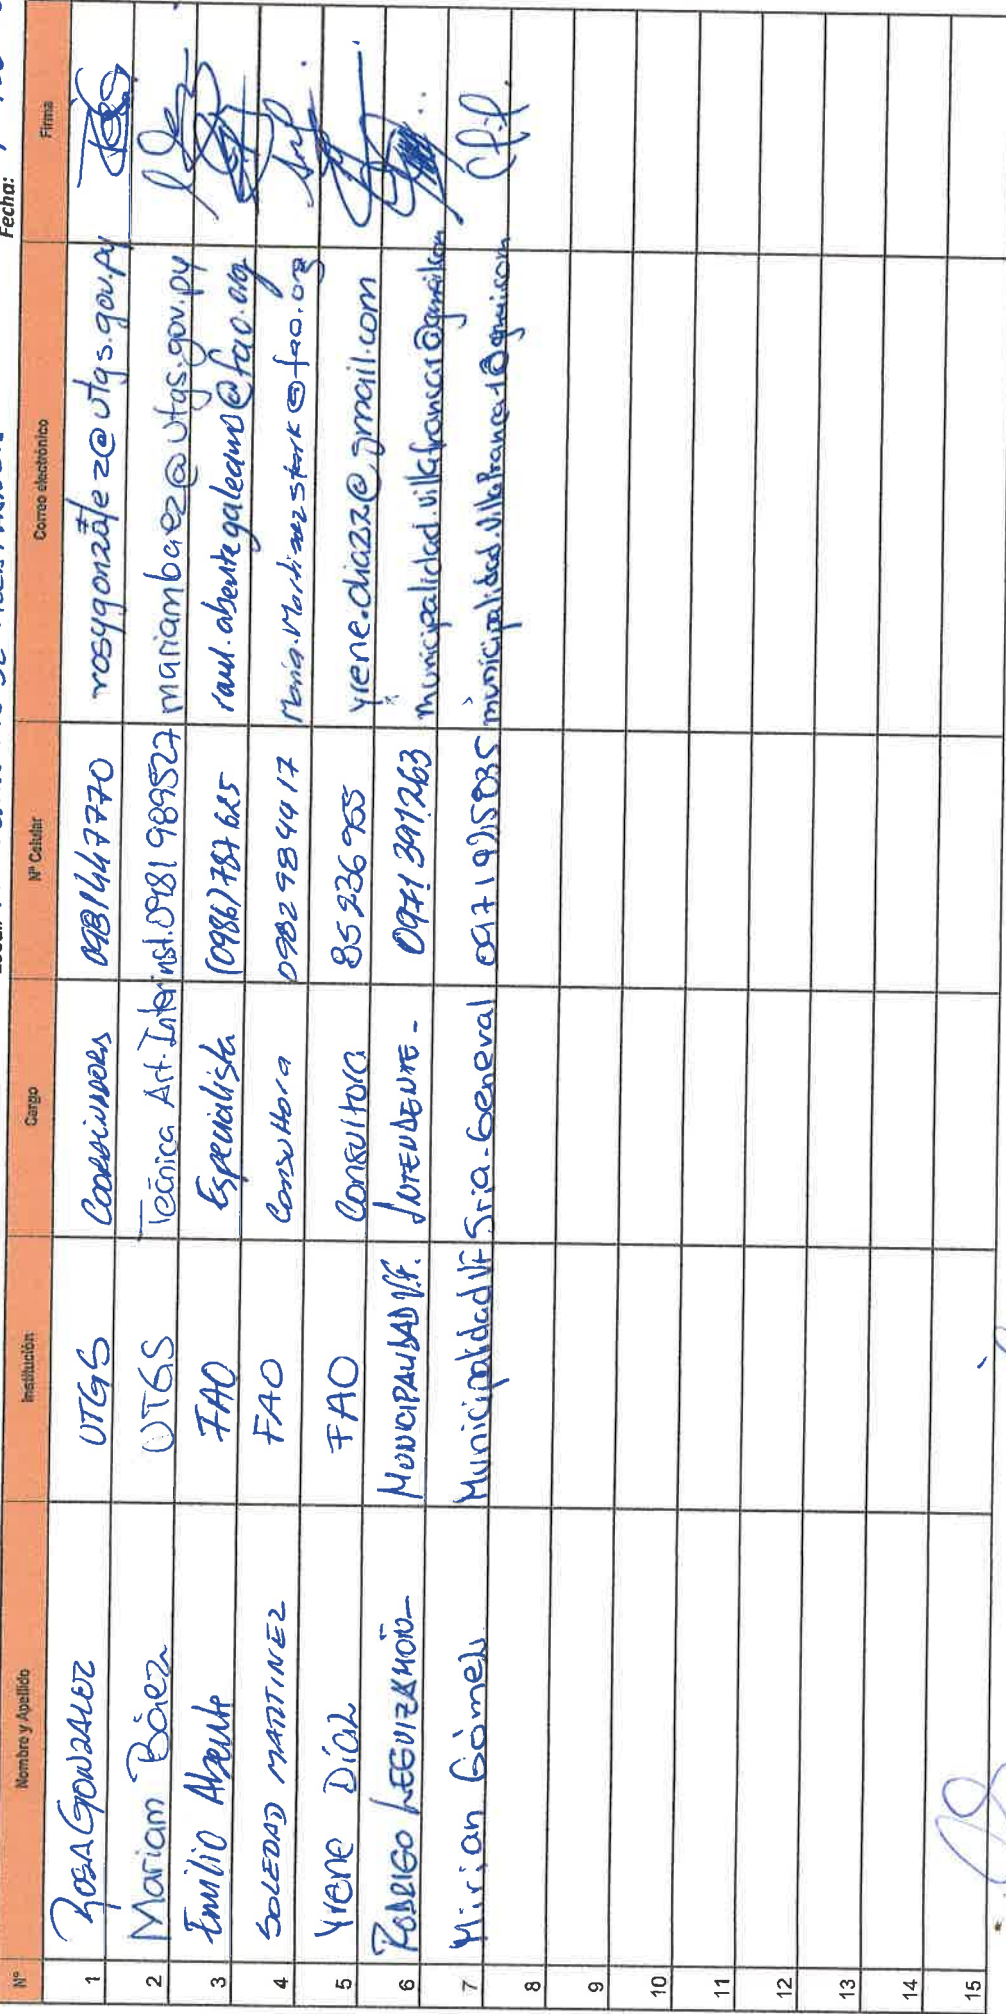 Fecha:
Nº Nombre y Apellido Institución Cargo Nº Celular Correo electrónico Firma
1 ROSA GONZALEZ UTGS COORDINADORA 0981447770 rosygonzalez@utgs.gov.py
2 Mariam Báez UTGS Técnica Art. Interinst. 0981989527 mariambaez@utgs.gov.py
3 Emilio Absente FAO Especialista (0986) 787 625 raul.absentegaleano@fao.org
4 SOLEDAD MARTINEZ FAO Consultora 0982984417 Maria.Martinezstark@fao.org
5 Yrene Díaz FAO Consultora 85236955 yrene.diazz@gmail.com
6 RODRIGO LEGUIZAMÓN_ MUNICIPALIDAD V.F. INTENDENTE - 0971 397263
7 Mirian Gómez Municipalidad VF Sria. General 0971925835
8
9
10
11
12
13
14
15